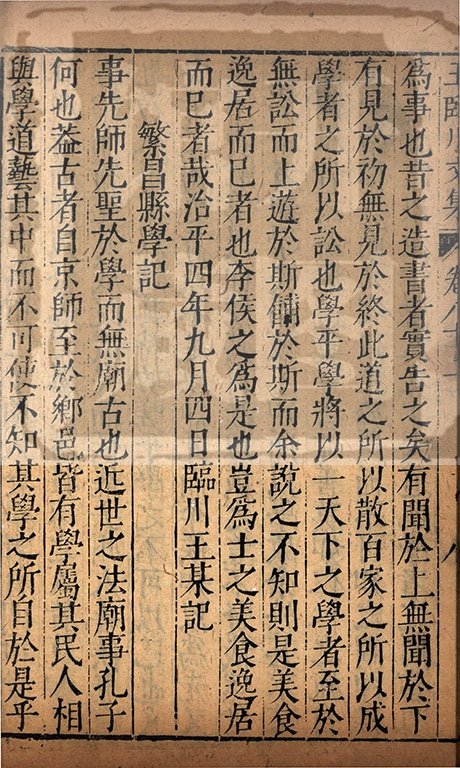 王臨川文集 卷八十 八
為事也昔之造書者實告之矣有聞於上無聞於下
有見於初無見於終此道之所以散百家之所以成
學者之所以訟也學乎學將以一天下之學者至於
無訟而上遊於斯餔於斯而余說之不知則是美食
逸居而已者也李侯之為是也豈為士之美食逸居
而已者哉治平四年九月四日臨川王某記
繁昌縣學記
事先師先聖於學而無廟古也近世之法廟事孔子
何也葢古者自京師至於鄉邑皆有學屬其民人相
與學道藝其中而不可使不知其學之所自於是乎